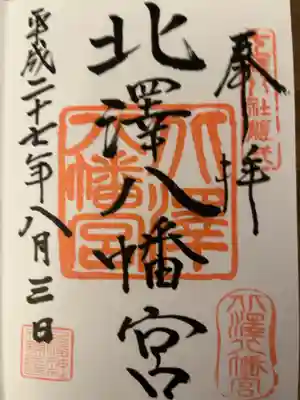 奉拝
北澤八幡宮
平成二十七年八月三日
北澤八幡宮
北澤八幡宮